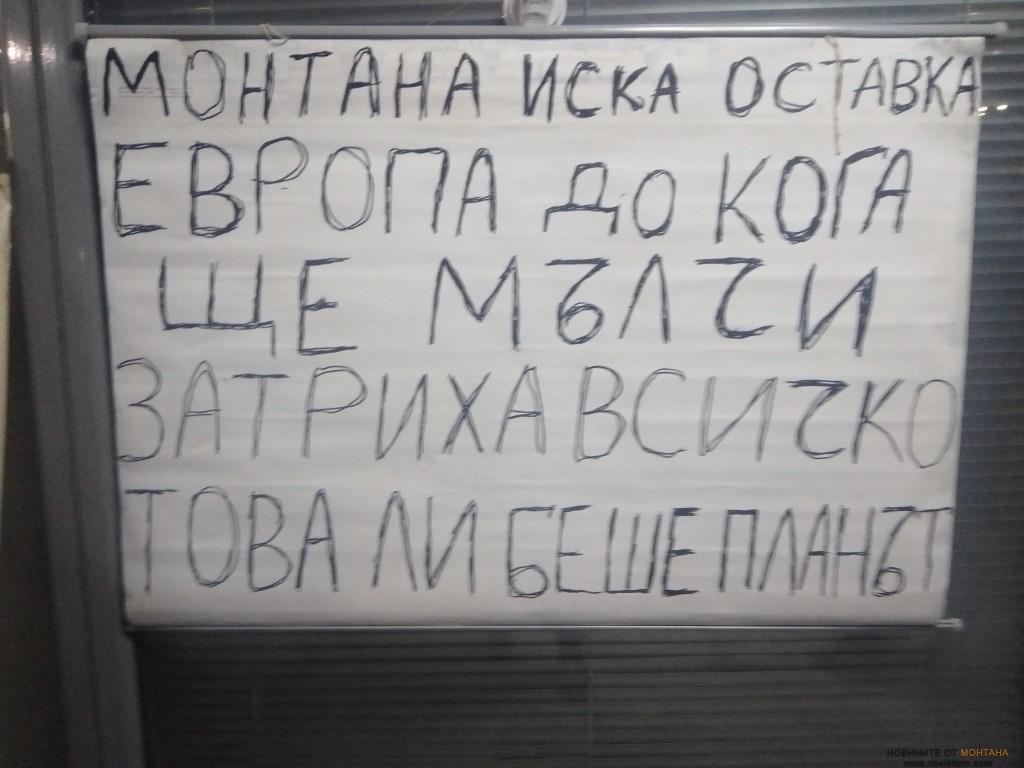 МОНТАНА ИСКА ОСТАВКА
ЕВРОПА ДО КОГА
ЩЕ МЪЛЧИ
ЗАТРИХА ВСИЧКО
ТОВА ЛИ БЕШЕ ПЛАНЪТ
НОВИНИТЕ ОТ МОНТАНА
www.novinitem.com